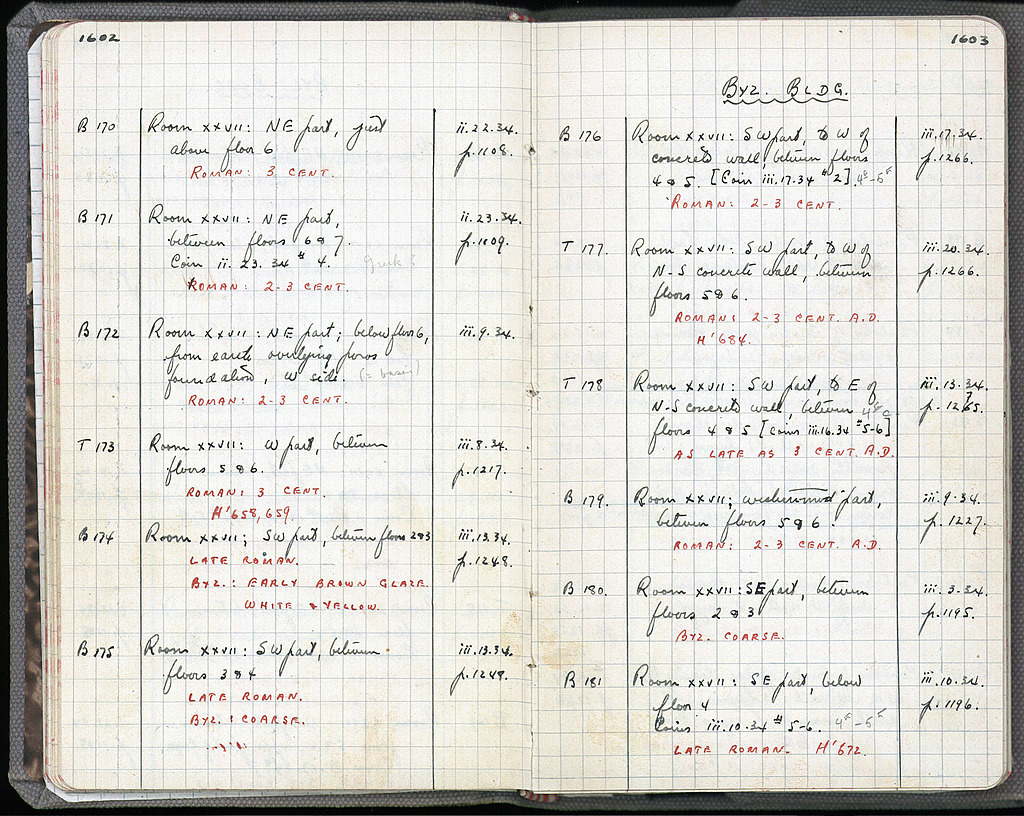 1602
B 170 Room xxvii: NE part, just ii.22.34.
above floor 6 p.1108.
ROMAN: 3 CENT.
B 171 Room xxvii: NE part, ii.23.34.
between floors 6 & 7. p.1109.
Coin ii. 23. 34 # 4.
ROMAN: 2-3 CENT.
B 172 Room xxvii: NE part; below floor 6, iii.9.34.
from earth overlying poros
foundation, W side. (= basin)
ROMAN: 2-3 CENT.
T 173 Room xxvii: W part, between iii.8.34.
floors 5 & 6. p.1217.
ROMAN: 3 CENT.
H'658, 659.
B 174 Room xxvii; SW part, between floors 2&3 iii.13.34.
LATE ROMAN. p.1248.
BYZ.: EARLY BROWN GLAZE.
WHITE & YELLOW.
B 175 Room xxvii: SW part, between iii.13.34.
floors 3 & 4 p.1248.
LATE ROMAN.
BYZ.: COARSE.
1603
BYZ. BLDG.
B 176 Room xxvii: SW part, to W of iii.17.34.
concrete wall, between floors p.1266.
4 & 5. [Coin iii.17.34 # 2].
ROMAN: 2-3 CENT.
T 177. Room xxvii: SW part, to W of iii.20.34.
N-S concrete wall, between p.1266.
floors 5 & 6.
ROMAN: 2-3 CENT. A.D.
H'684.
T 178 Room xxvii: SW part, to E of iii.13.34.
N-S concrete wall, between p. 1265.
floors 4 & 5 [Coins iii.16.34 # 5-6]
AS LATE AS 3 CENT. A.D.
B 179. Room xxvii; westernmost part, iii.9.34.
between floors 5 & 6. p.1227.
ROMAN: 2-3 CENT. A.D.
B 180. Room xxvii: SE part, between iii.3.34.
floors 2 & 3 p.1195.
BYZ. COARSE.
B 181 Room xxvii: SE part, below iii.10.34.
floor 4 p.1196.
Coins iii.10.34 # 5-6.
LATE ROMAN. H'672.